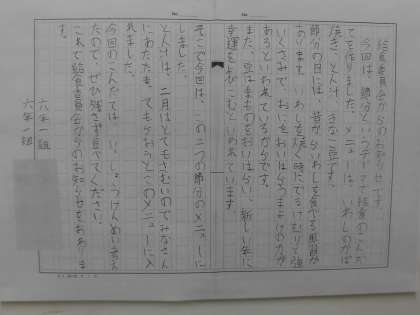 給食委員会からのお知らせです。
今回は、節分というテーマで給食のこんだ
てを作りました。メニューは、いわしのかば
焼き、とん汁、きなこ豆です。
節分の日には、昔からいわしを食べる風習が
あります。いわしを焼く時にでるけむりと強
いくさみで、おにをおいはらうまよけの力が
あるといわれているからです。
また、豆はまものをおいはらい、新しい年に
幸運をよびこむといわれています。
そこで今回は、この二つの節分のメニューに
しました。
とん汁は、二月はとてもさむいのでみなさん
にあたたまってもらおうとこのメニューに入
れました。
今回のこんだては、いっしょうけんめい考え
たので、ぜひ残さず食べてください。
これで給食委員会からのお知らせをおわりま
す。
六年一組
六年一組